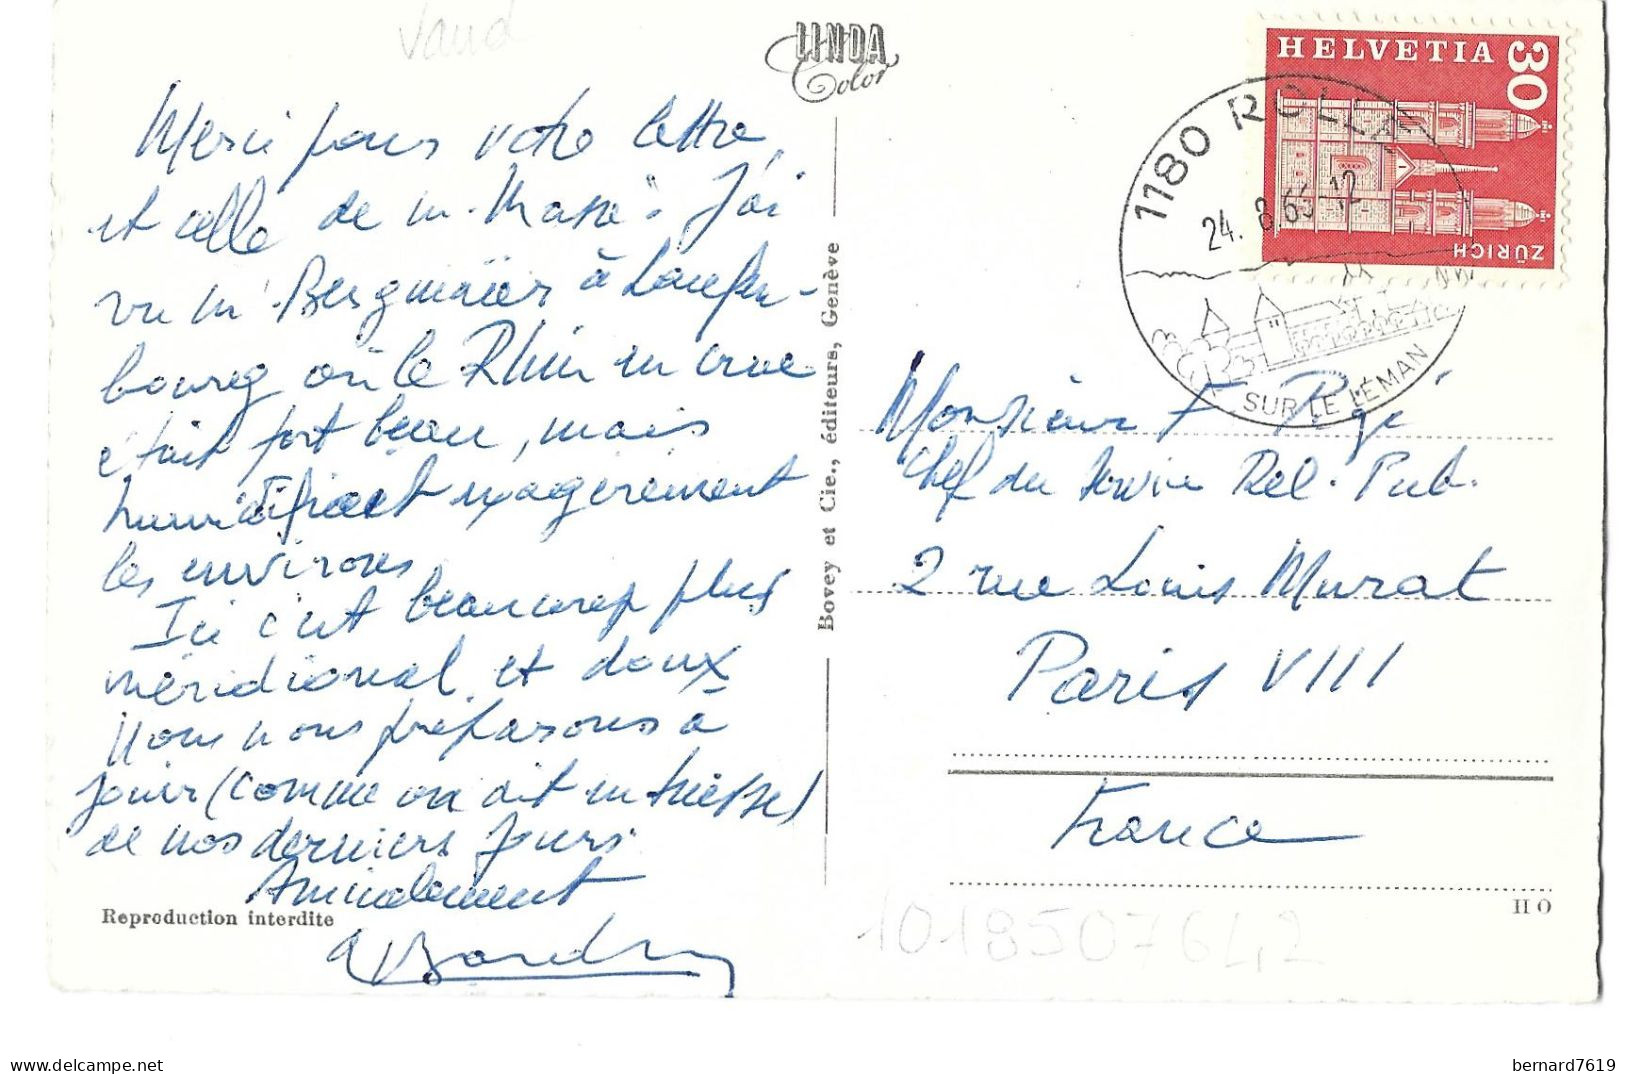 Vaud
LINDA
Color
HELVETIA 30
ZÜRICH
1180 ROLLE
24. 8. 12
SUR LE LÉMAN
Merci pour votre lettre,
et celle de M. J'ai
vu M. à Laufen-
bourg où le Rhin en crue
était fort beau, mais
exagérement
les environs
Ici c'est beaucoup plus
méridional et doux
Nous nous préparons à
jouir (comme on dit en Suisse)
de nos derniers jours.
Amicalement
Reproduction interdite
Bovey et Cie., éditeurs, Genève
Monsieur F.
Chef du service Rel. Pub.
2 rue Louis Murat
Paris VIII
France
II O
1018507642
delcampe.net
bernard7619